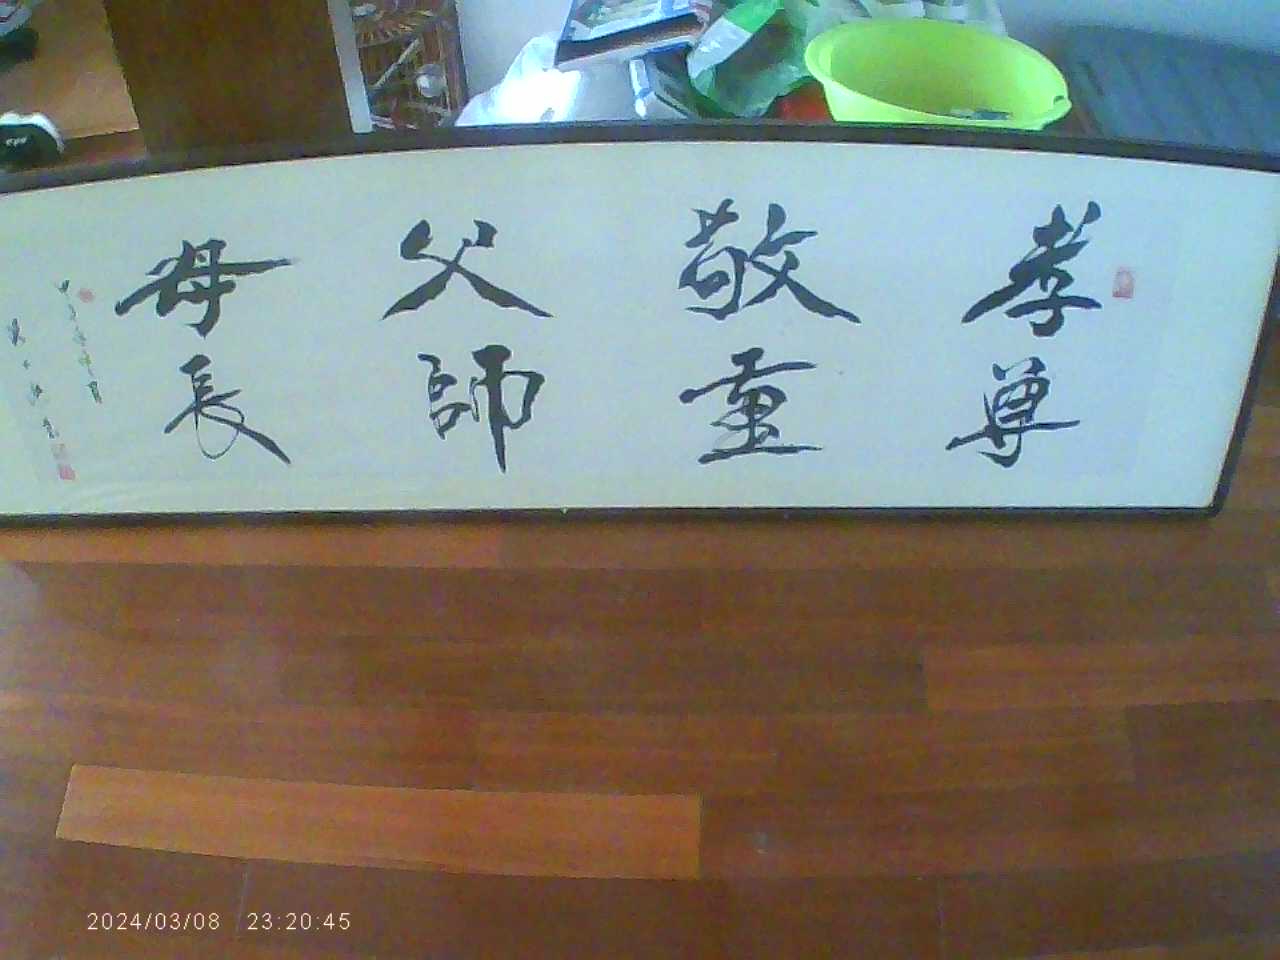 孝敬父母
尊重師長
2024/03/08 23:20:45